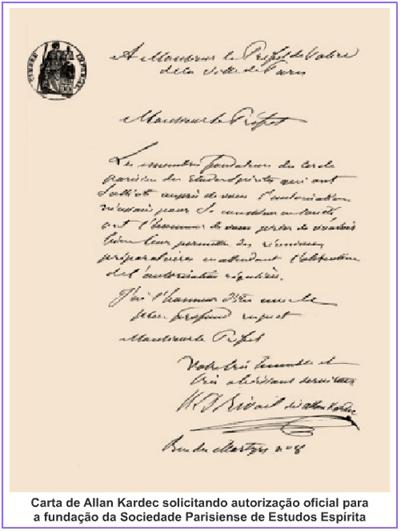 TIMBRE IMPERIAL
A Monsieur le Préfet de Police
de la ville de Paris
Monsieur le Préfet
Les membres fondateurs du Cercle
parisien des études spirites qui ont
sollicité auprès de vous l'autorisation
nécessaire pour se constituer en société
ont l'honneur de vous prier de vouloir
bien leur permettre des réunions
préparatoires en attendant l'obtention
de l'autorisation régulière.
J'ai l'honneur d'être avec le
plus profond respect
Monsieur le Préfet
Votre très humble et
très obéissant serviteur
H. D. Rivail dit Allan Kardec
Rue des Martyrs n° 8
Carta de Allan Kardec solicitando autorização oficial para
a fundação da Sociedade Parisiense de Estudos Espírita